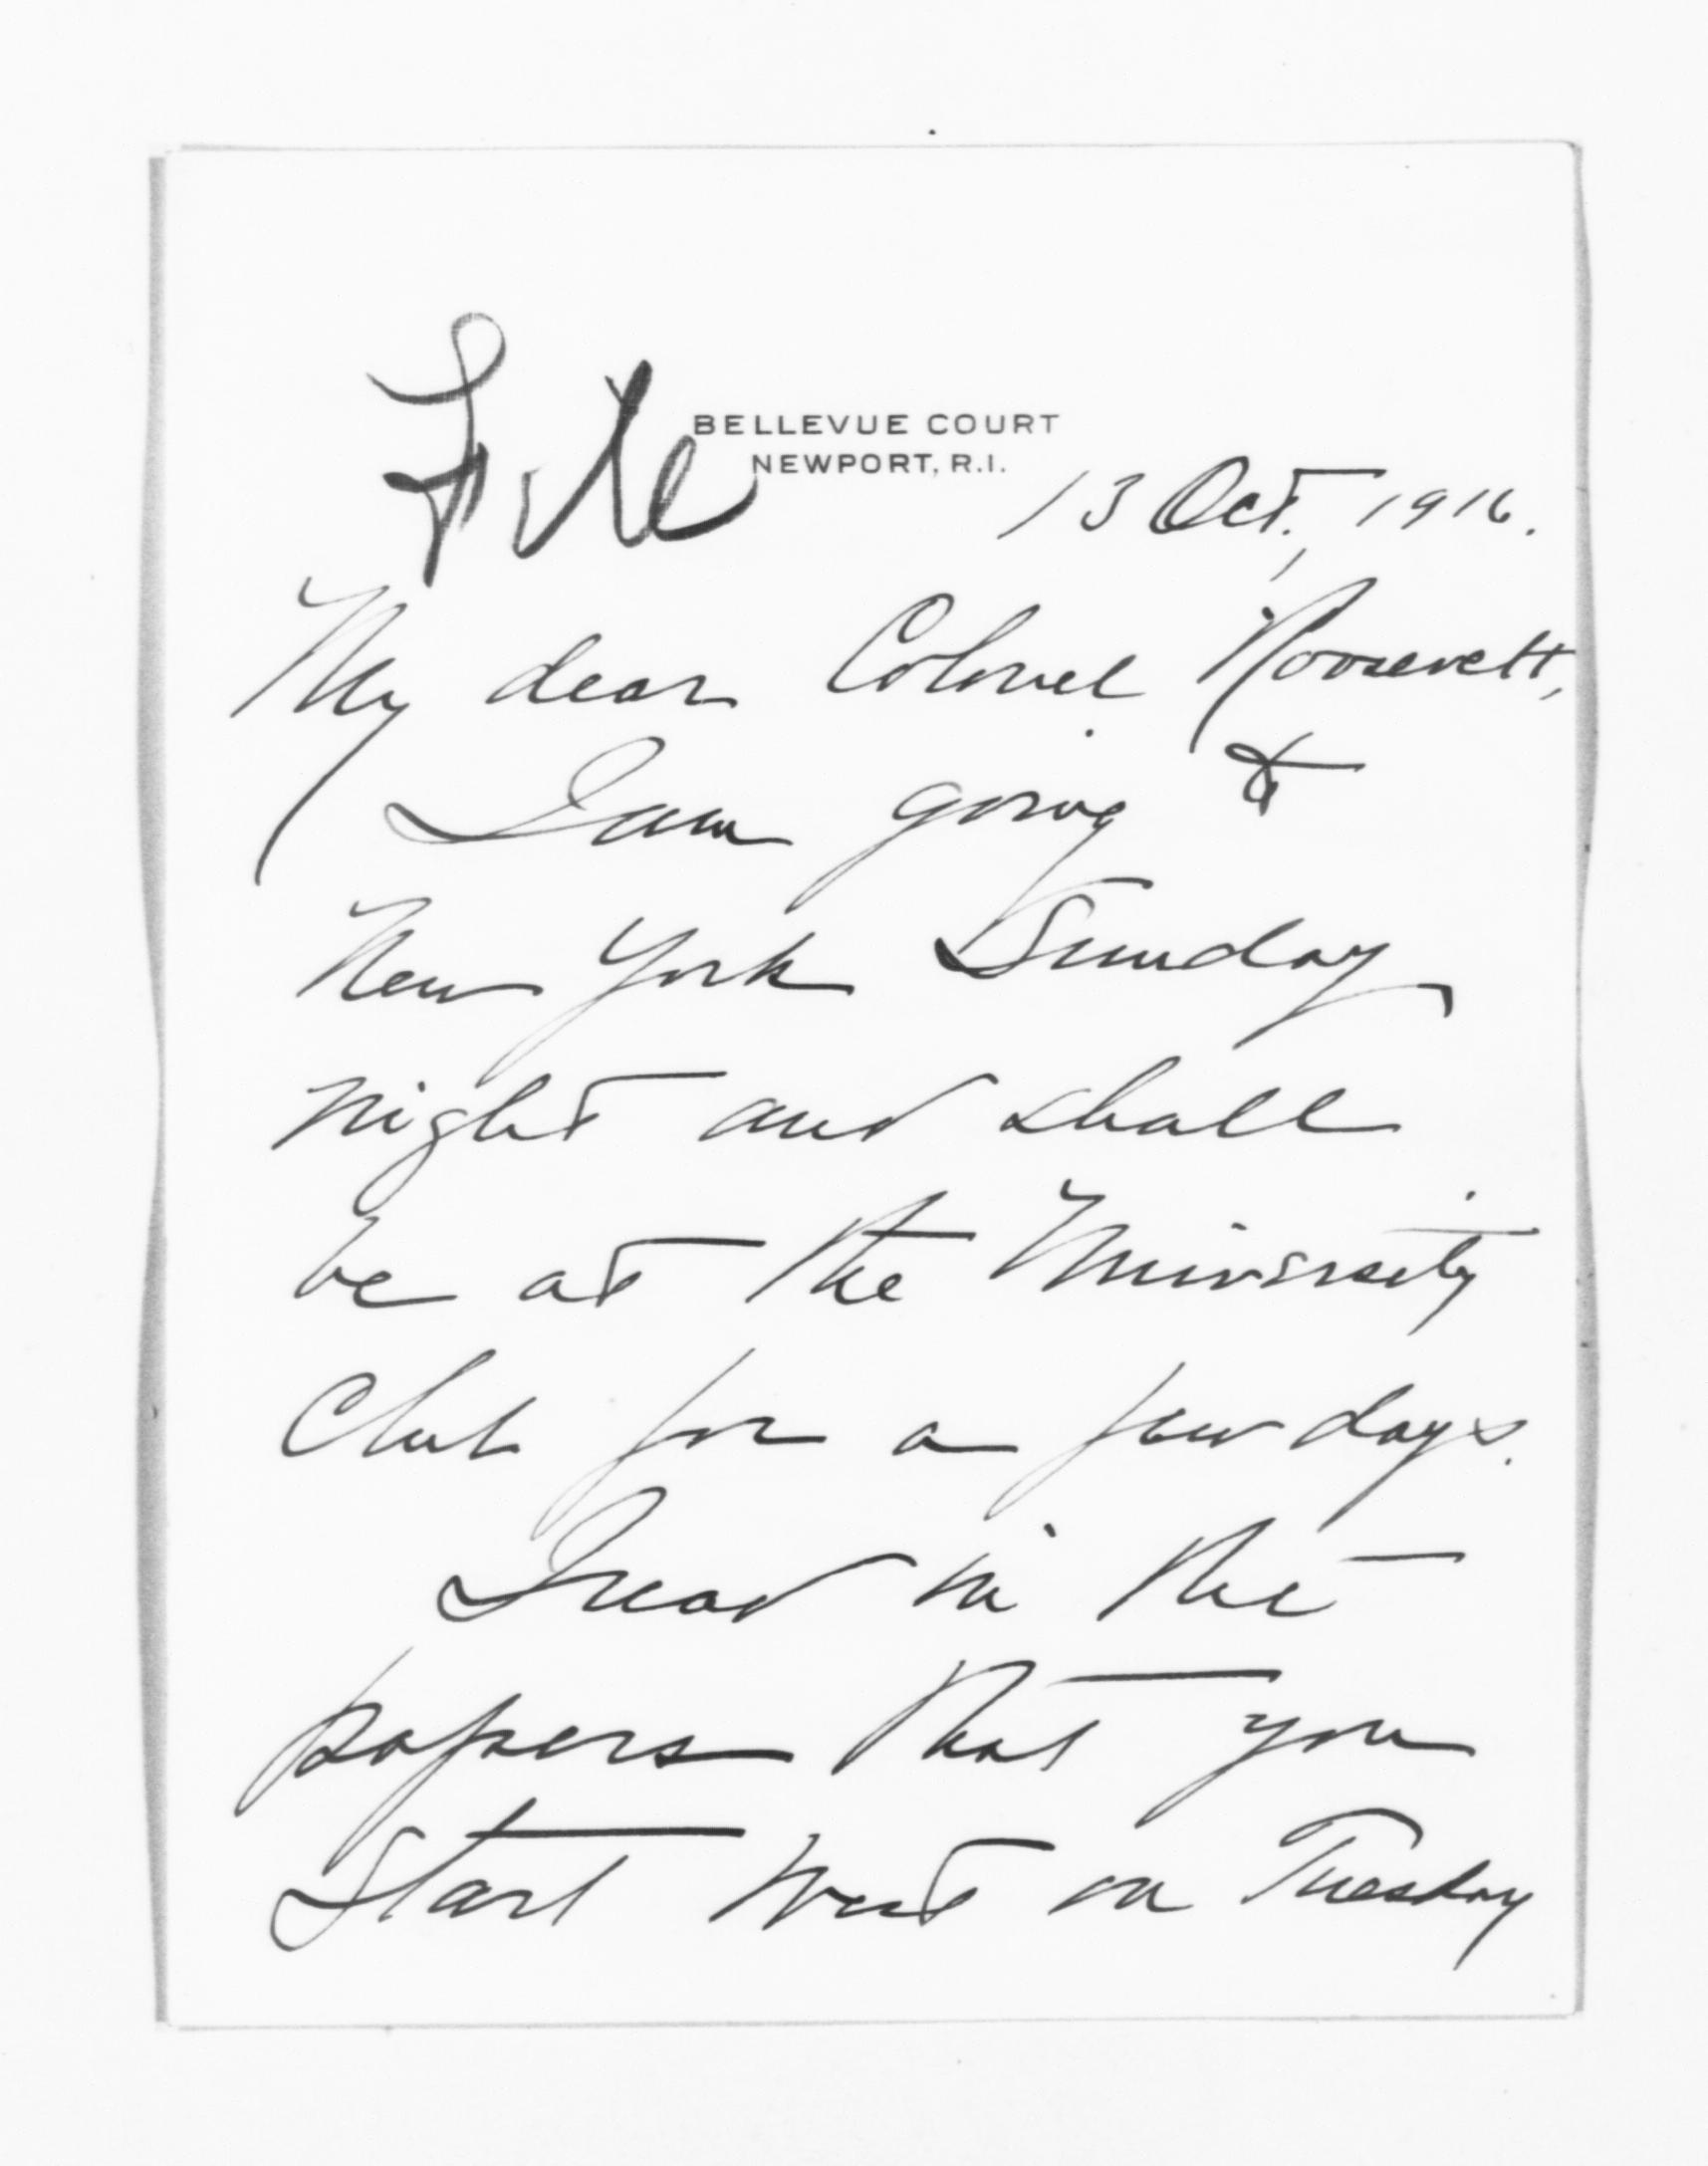 File
BELLEVUE COURT
NEWPORT, R.I.
13 Oct., 1916.
My dear Colonel Roosevelt,
I am going to
New York Sunday
night and shall
be at the University
Club for a few days.
I read in the
papers that you
start West on Tuesday